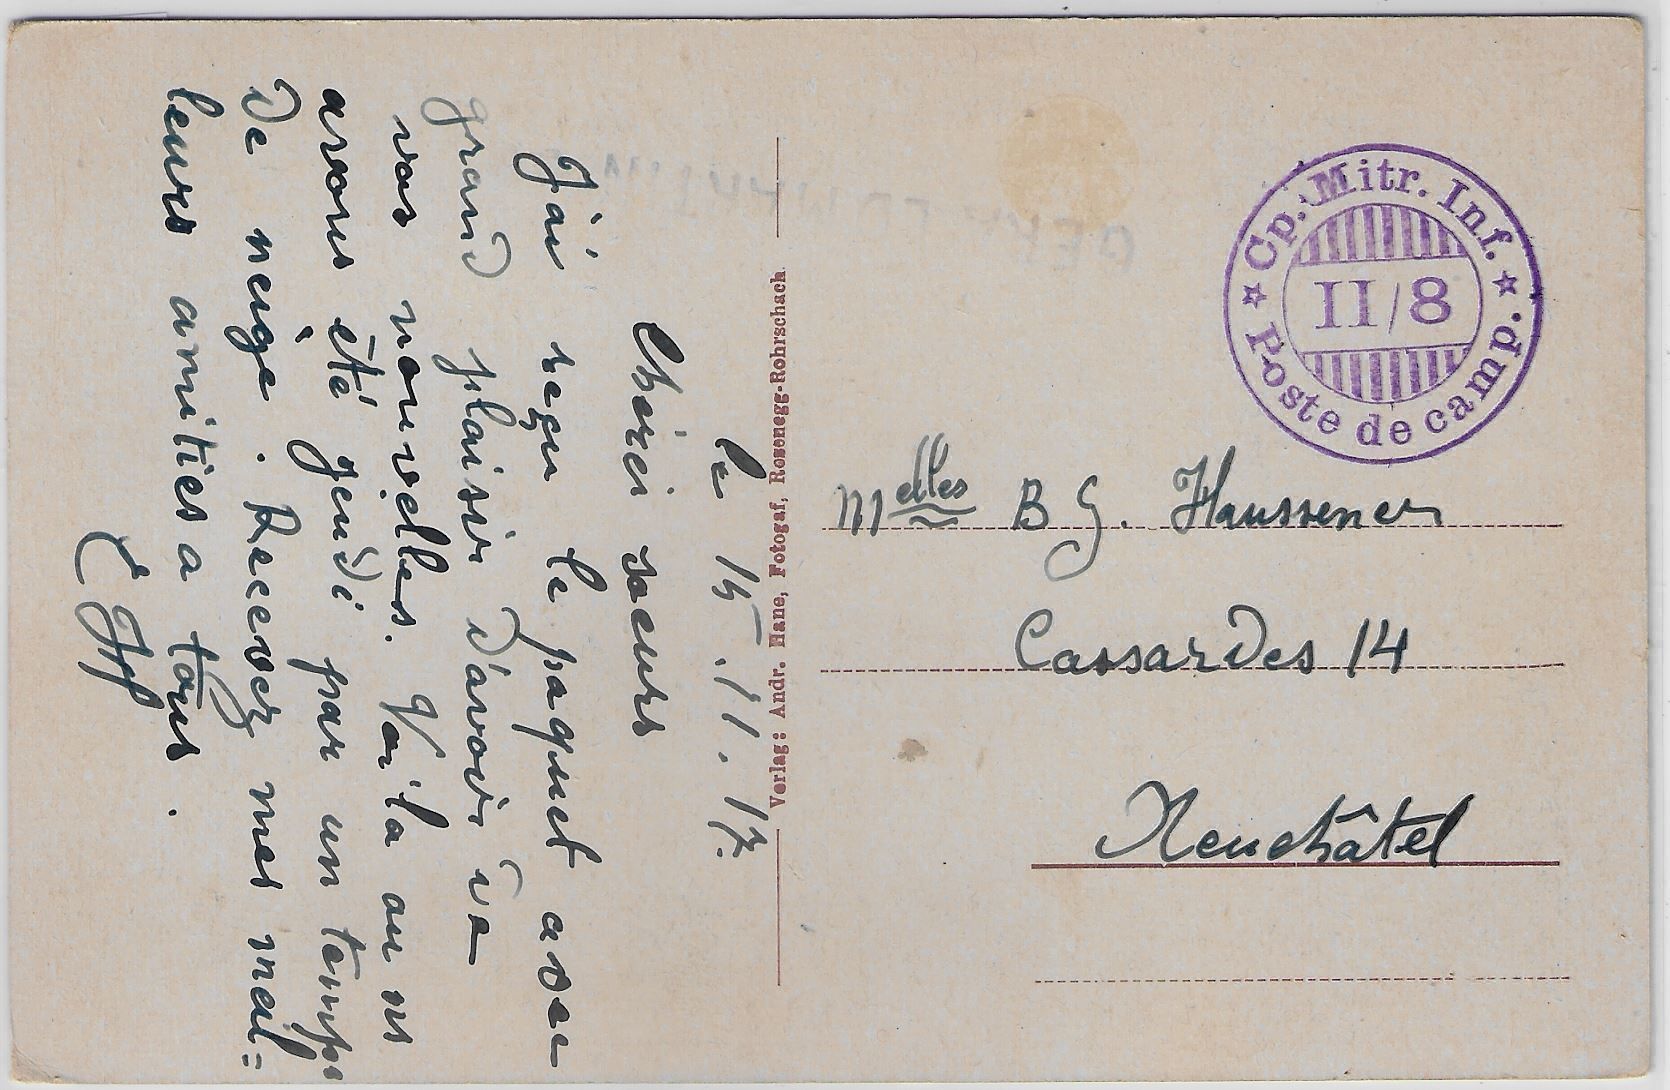 Cp. Mitr. Inf.
II/8
Poste de camp.
Melles B G. Haussener
Cassardes 14
Neuchâtel
Verlag: Andr. Hane, Fotogaf, Rozenegg-Rohrschach.
le 15.11.17.
Chères soeurs
J'ai reçu le paquet avec
grand plaisir d'avoir
vos nouvelles. Voila on ns
avons été jeudi par un temps
De neige. Recevez mes meil=
leurs amitiés a tous.